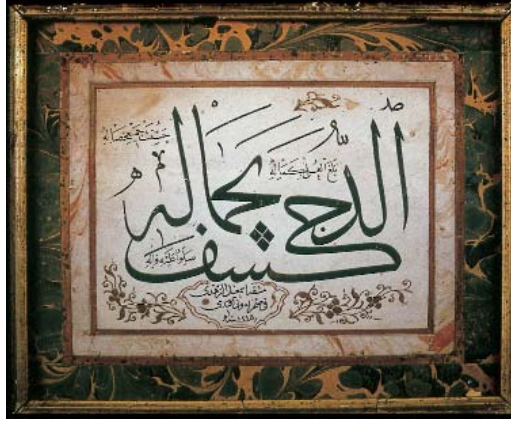 بلغ العلى بكماله
كشف الدجى بجماله
حسنت جميع خصاله
صلوا عليه وآله
اسمعيل الزهدى